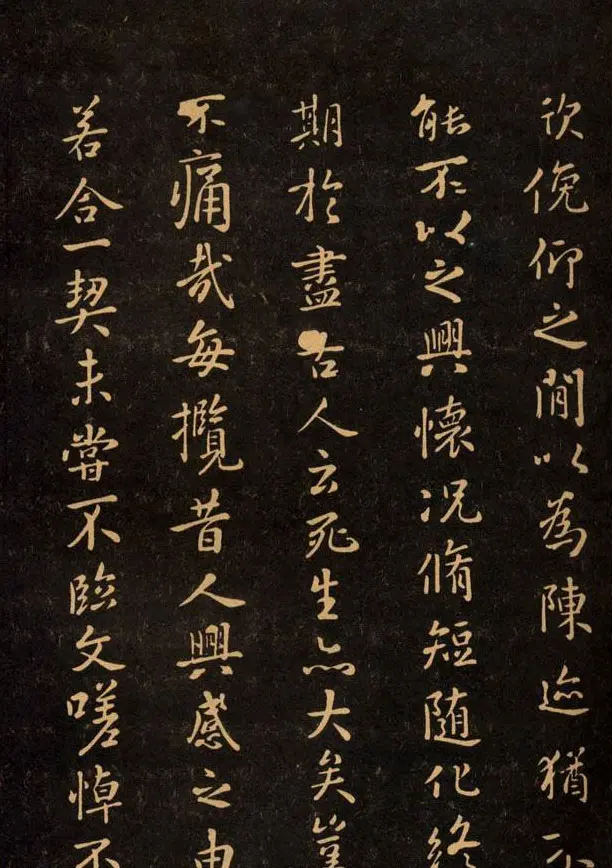 欣俛仰之間以為陳迹猶不
能不以之興懷况脩短随化終
期於盡古人云死生亦大矣豈
不痛哉每攬昔人興感之由
若合一契未嘗不臨文嗟悼不